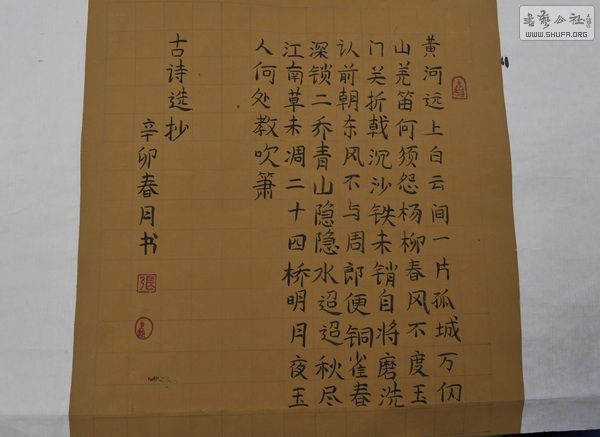 黄河远上白云间一片孤城万仞
山羌笛何须怨杨柳春风不度玉
门关折戟沉沙铁未销自将磨洗
认前朝东风不与周郎便铜雀春
深锁二乔青山隐隐水迢迢秋尽
江南草未凋二十四桥明月夜玉
人何处教吹箫
古诗选抄
辛卯春月书
張
書藝公社
WWW.SHUFA.ORG